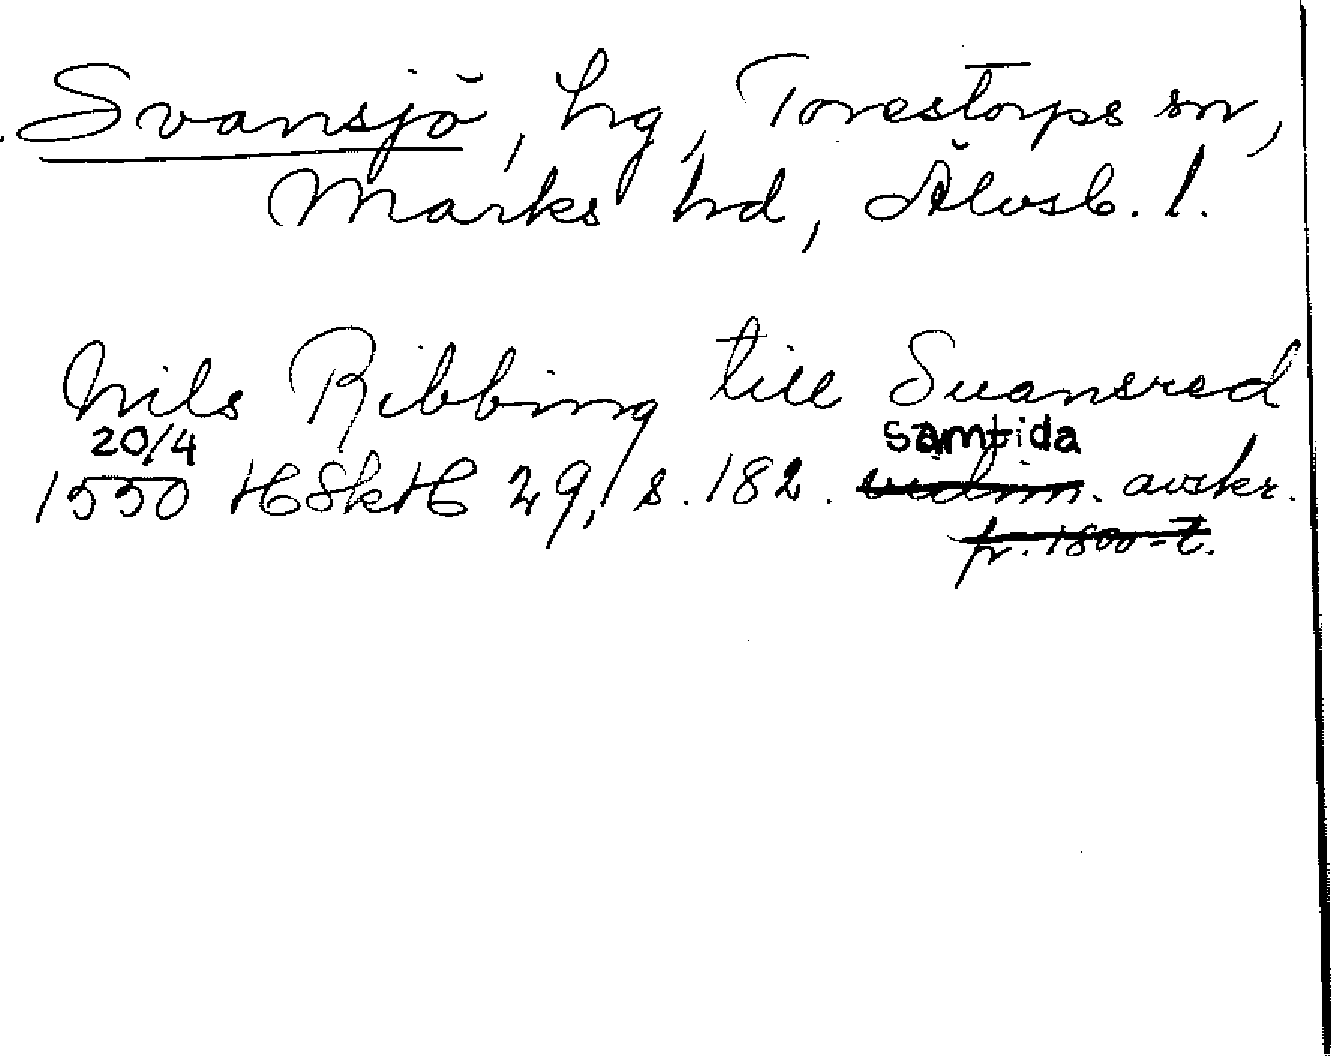 Svansjö, hg, Torestorps sn,
Marks hd, Älvsb. l.
Nils Ribbing till Suansred
20/4 samtida
1550 HSkH 29, s. 182. vidim. avskr.
fr. 1800-t.